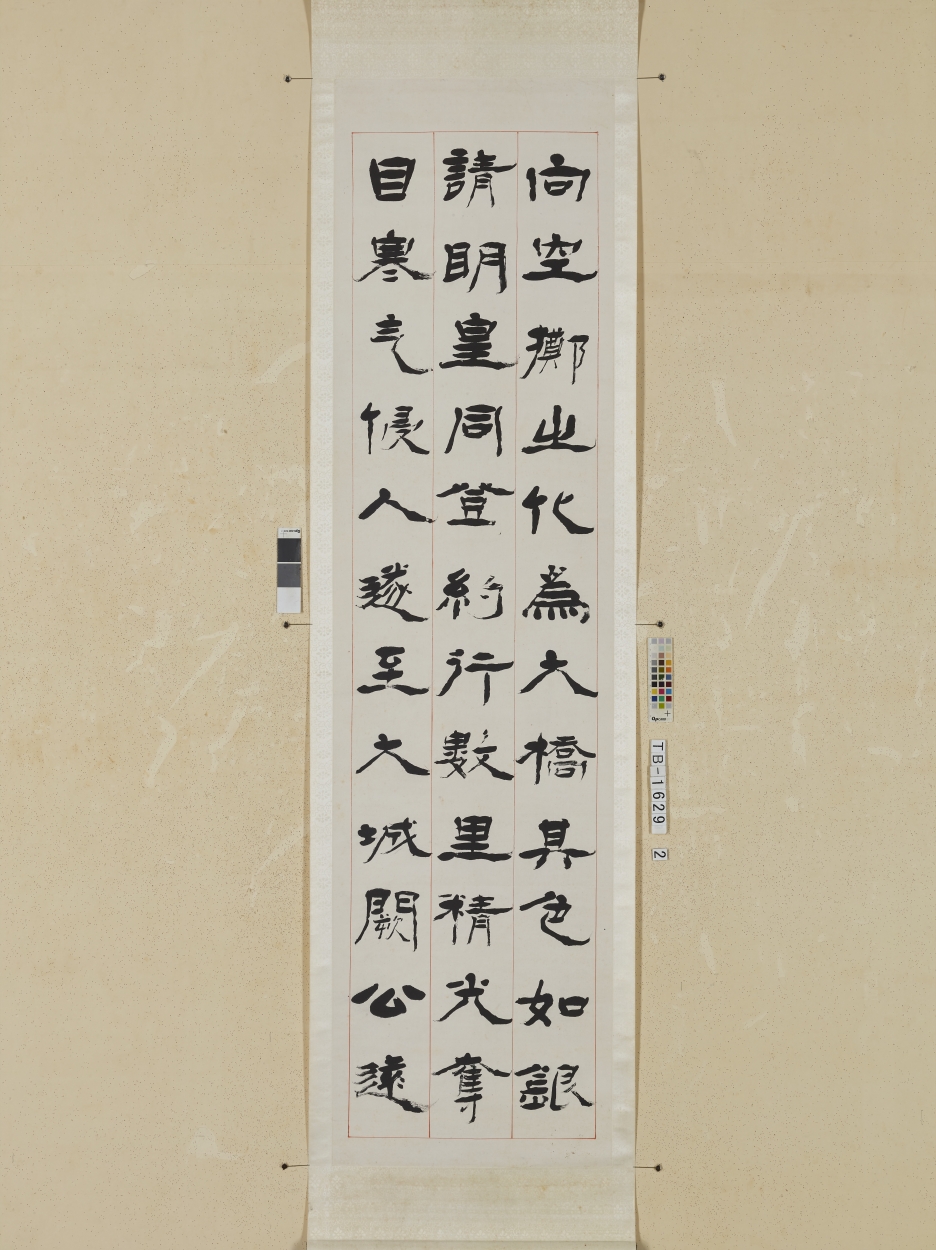 向空擲之化為大橋其色如銀
請明皇同登約行數里精光奪
目寒气侵人遂至大城闕公遠
TB-1629
2